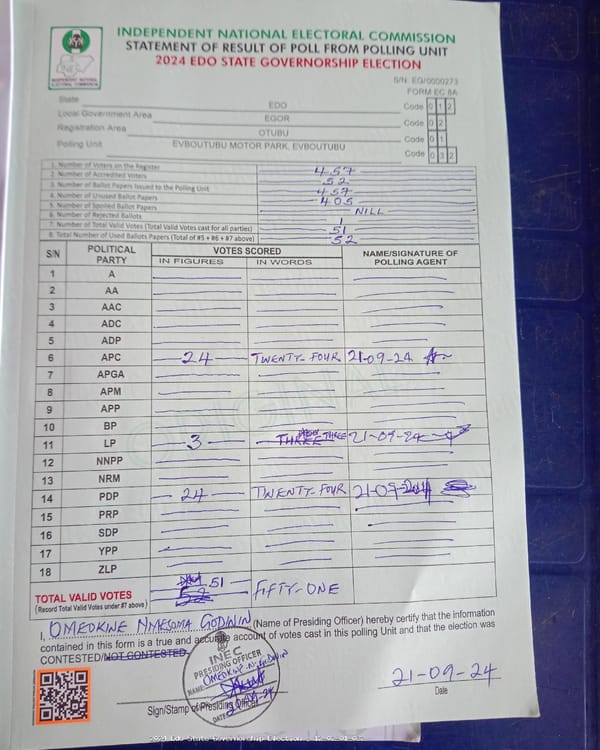 INDEPENDENT NATIONAL ELECTORAL COMMISSION
STATEMENT OF RESULT OF POLL FROM POLLING UNIT
2024 EDO STATE GOVERNORSHIP ELECTION
INEC
INDEPENDENT NATIONAL
ELECTORAL COMMISSION
S/N: EG/0000273
FORM EC 8A
State EDO Code 0 1 2
Local Government Area EGOR Code 0 2
Registration Area OTUBU Code 0 1
Polling Unit EVBOUTUBU MOTOR PARK, EVBOUTUBU Code 0 3 2
1. Number of Voters on the Register 457
2. Number of Accredited Voters 52
3. Number of Ballot Papers Issued to the Polling Unit 457
4. Number of Unused Ballot Papers 405
5. Number of Spoiled Ballot Papers NILL
6. Number of Rejected Ballots 1
7. Number of Total Valid Votes (Total Valid Votes cast for all parties) 51
8. Total Number of Used Ballots Papers (Total of #5 + #6 + #7 above) 52
S/N POLITICAL PARTY VOTES SCORED NAME/SIGNATURE OF POLLING AGENT
IN FIGURES IN WORDS
1 A
2 AA
3 AAC
4 ADC
5 ADP
6 APC 24 TWENTY-FOUR 21-09-24
7 APGA
8 APM
9 APP
10 BP
11 LP 3 THREE THREE 21-09-24
12 NNPP
13 NRM
14 PDP 24 TWENTY-FOUR 21-09-2024
15 PRP
16 SDP
17 YPP
18 ZLP
TOTAL VALID VOTES 51 52 FIFTY-ONE
(Record Total Valid Votes under #7 above)
I, OMEOKWE NMESOMA GODWIN (Name of Presiding Officer) hereby certify that the information
contained in this form is a true and accurate account of votes cast in this polling Unit and that the election was
CONTESTED/NOT CONTESTED.
INEC
PRESIDING OFFICER
NAME:
DATE
21-09-24
Sign/Stamp of Presiding Officer
21-09-24
Date